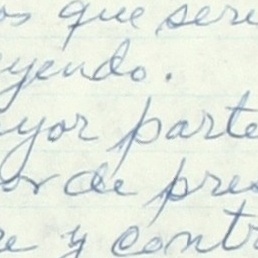 os que seri
yendo.
ayor parte
or de pres
re y contr